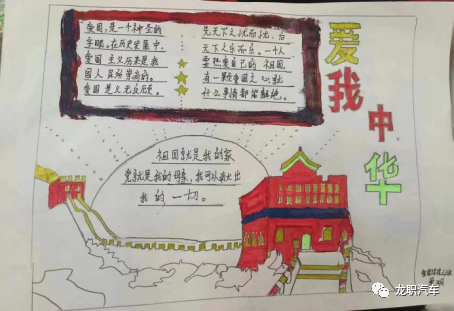 爱我中华
爱国,是一个神圣的
字眼。在历史发展中,
爱国主义历来是我
国人民所崇尚的。
爱国是义无反顾。
先天下之忧而忧,后
天下之乐而乐。一个人
要热爱自己的祖国,
有一颗爱国之心,就
什么事情都能解绝。
祖国就是我的家
就是我的母亲,我可以献出
我的一切。
龙职汽车